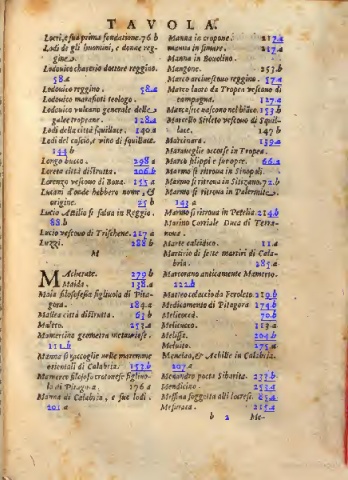 TAVOLA.
Locri, e sua prima fondatione. 76 b
Lodi de gli huomini, e donne reg-
gine.
Lodovico charerio dottore reggino.
58.a
Lodovico reggino. 58.a
Lodovico marafioti teologo.
Lodovico vulcano generale delle
galee tropeane. 128.a
Lodi della città squillace. 140 a
Lodi del casio, e vino di squillace.
144 b
Longo bucco. 298 a
Loreto città distrutta. 206.b
Lorenzo vescovo di Bova. 153 a
Lucani d'onde hebbero nome, &
origine. 25 b
Lucio Attilia si salva in Reggio.
88.b
Lucio vescovo di Trischene. 217 a
Luzzi. 288 b
M
MAcherate. 279 b
Maida. 138.a
Maia filosofessa figliuola di Pita-
gora. 184.a
Mallea città distrutta. 63 b
Maleto. 253.a
Mamertino geometra metaurese.
111.b
Manna si raccoglie nelle maremme
orientali di Calabria. 153.b
Mamerco filosofo crotonese figliuo-
lo di Pitagora. 176 a
Manna di Calabria, e sue lodi.
201 a
Manna in cropane. 217.a
manna in simare. 217.a
Manna in Bovalino.
Mangone. 253.b
Marco arcivescovo reggino. 57.a
Marco lauro da Tropea vescovo di
campagna. 127.a
Marcasite nascono nel bianco. 153.b
Marcello Sirleto vescovo di Squil-
lace. 147 b
Marcinara. 159.a
Maraveglie occorse in Tropea.
Marco filippi e suropere. 66.a
Marmo si ritrova in Sinopoli.
Marmo si ritrova in Sitizano. 72.b
Marmo si ritrova in Policastro.
143 a
Marmo si ritrova in Petelia. 214.b
Marino Corriale Duca di Terra-
nova.
Marte calidico. 11.a
Martirio di sette martiri di Cala-
bria. 283.a
Martorano anticamente Mamerto.
122.b
Matteo colaccio da Feroleto. 219.b
Medicamento di Pitagora 174.b
Melicocca 70.b
Melicucco. 113.a
Melissa. 204.b
Meluito. 275.a
Menelao, & Achille in Calabria.
207.a
Menandro poeta Sibarita. 237.b
Mendicino. 253.a
Messina soggetta alli locresi. 63.a
Mesuraca. 215.a
b 2 Me-